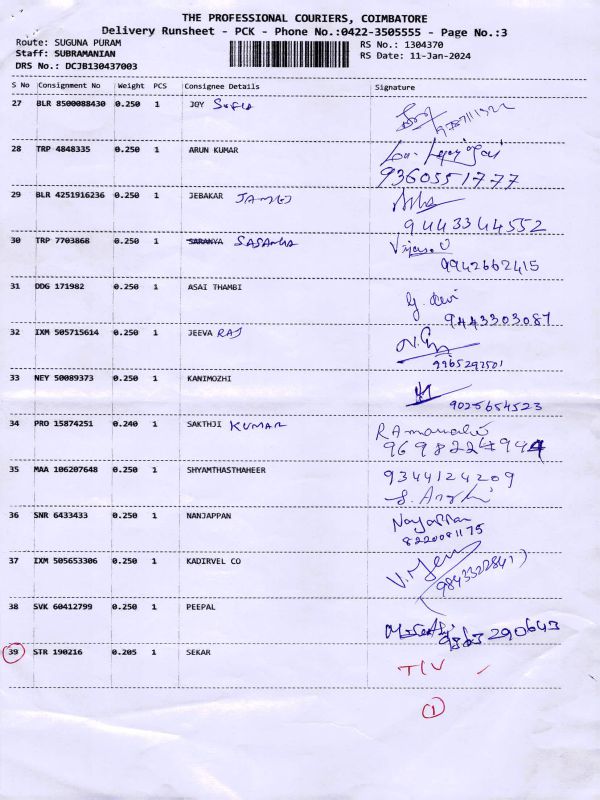 THE PROFESSIONAL COURIERS, COIMBATORE
Delivery Runsheet - PCK - Phone No.:0422-3505555 - Page No.:3
Route: SUGUNA PURAM RS No.: 1304370
Staff: SUBRAMANIAN RS Date: 11-Jan-2024
DRS No.: DCJB130437003
S No Consignment No Weight PCS Consignee Details Signature
27 BLR 8500088430 0.250 1 JOY
28 TRP 4848335 0.250 1 ARUN KUMAR
9360551777
29 BLR 4251916236 0.250 1 JEBAKAR
9443344552
30 TRP 7703868 0.250 1 SARANYA
9942662415
31 DDG 171982 0.250 1 ASAI THAMBI
g. devi
9443303087
32 IXM 505715614 0.250 1 JEEVA RAJ
9965292501
33 NEY 50089373 0.250 1 KANIMOZHI
9025654523
34 PRO 15874251 0.240 1 SAKTHJI KUMAR
9698224994
35 MAA 106207648 0.250 1 SHYAMTHASTHAHEER 9344124209
36 SNR 6433433 0.250 1 NANJAPPAN
8220081175
37 IXM 505653306 0.250 1 KADIRVEL CO
9843322841
38 SVK 60412799 0.250 1 PEEPAL
39 STR 190216 0.205 1 SEKAR
T/V
1